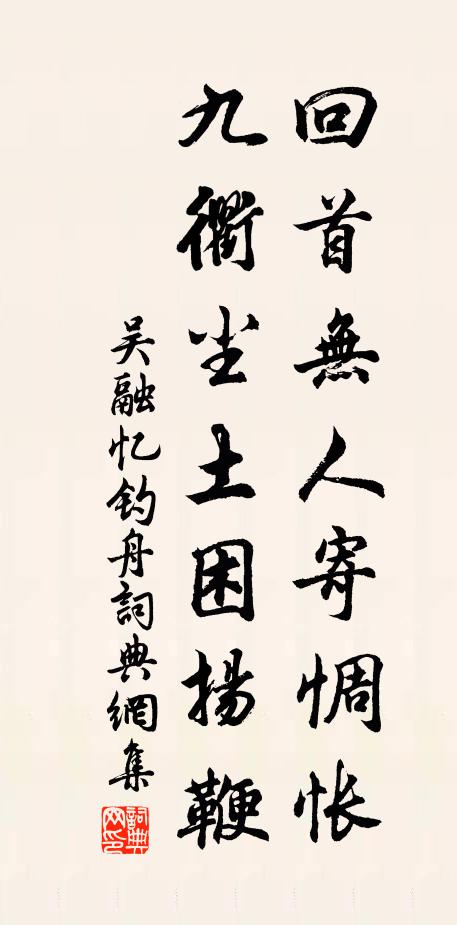 回首無人寄惆怅
九衢尘土困揚鞭
吴融忆钓舟詞典網集
詞典网印